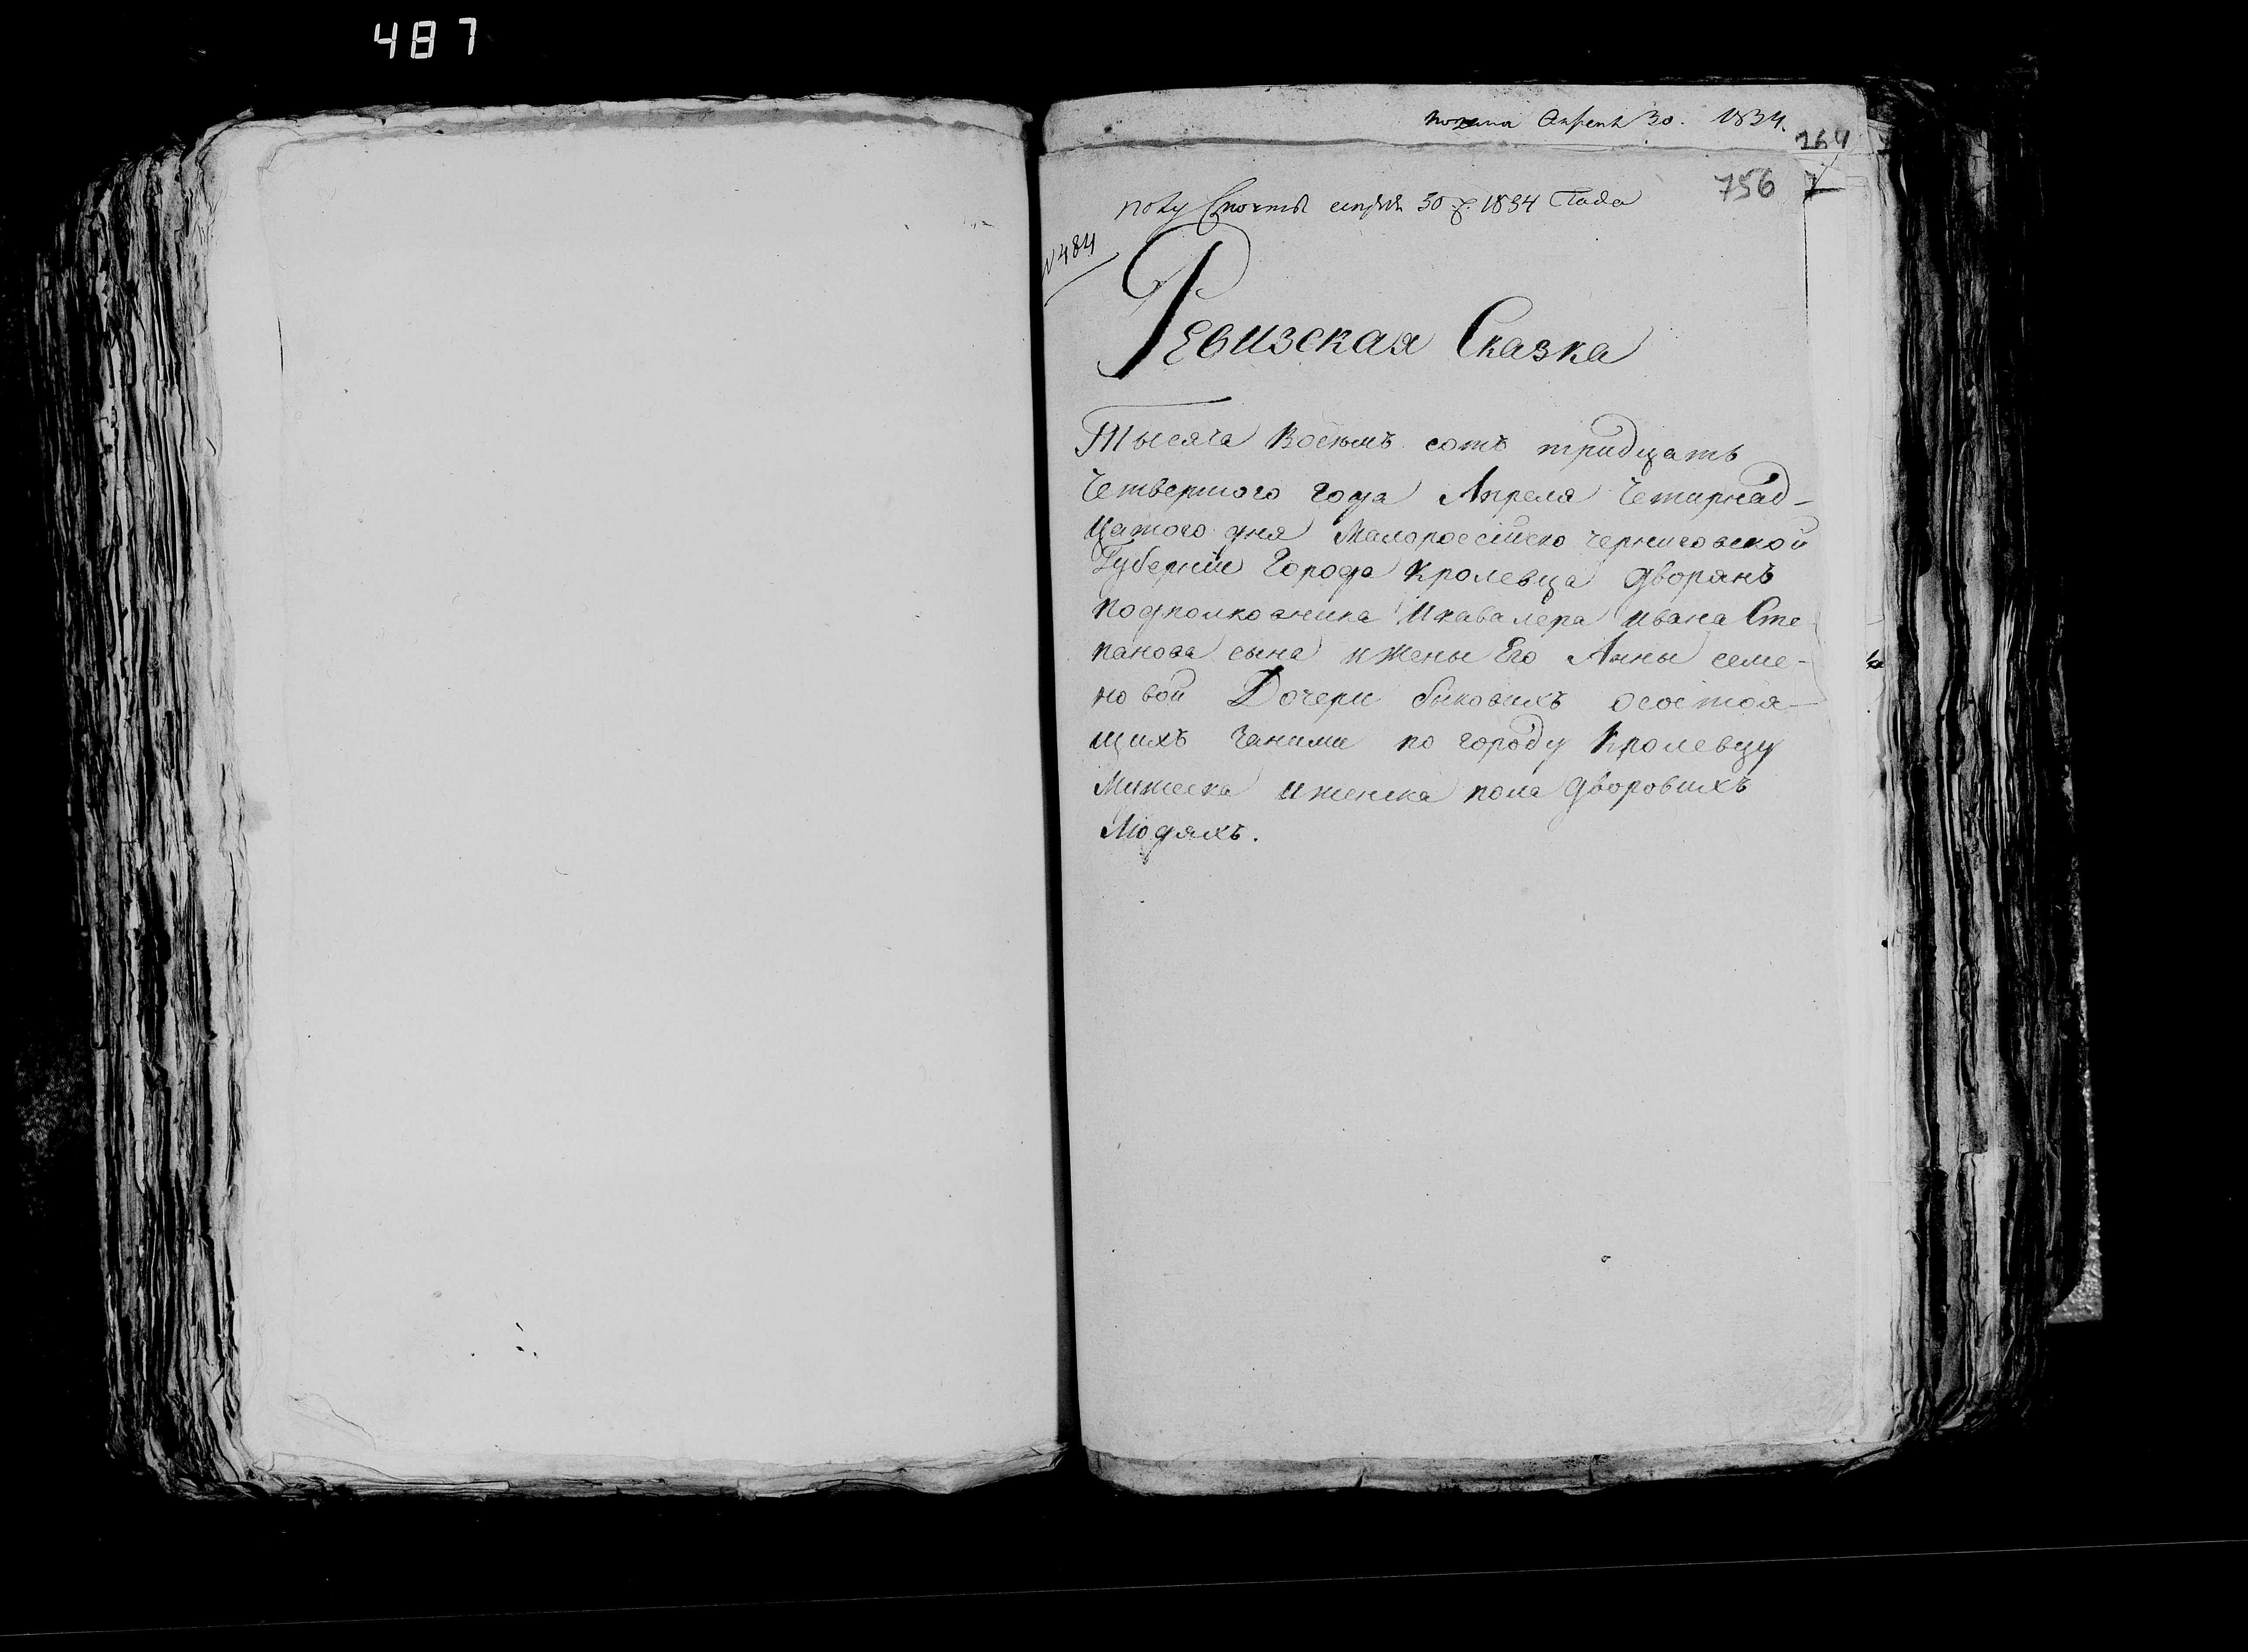 487
Апреля 30. 1834.
264
756
полу Спочты апреля 30 д. 1834 Года
N 484
Ревизская Сказка
Тысяча Восемъ сотъ тридцать
Четвертого года Апреля Четирнад-
Цатого дня Малороссийско черниговской
Губернии Города Кролевца дворянъ
подполковника Икавалера ивана Сте
панова сына ижены Его Анны семе-
новой Дочери биковихъ осостоя-
щихъ заними по городу Кролевцу
Мужеска иженска пола дворовихъ
Людяхъ.